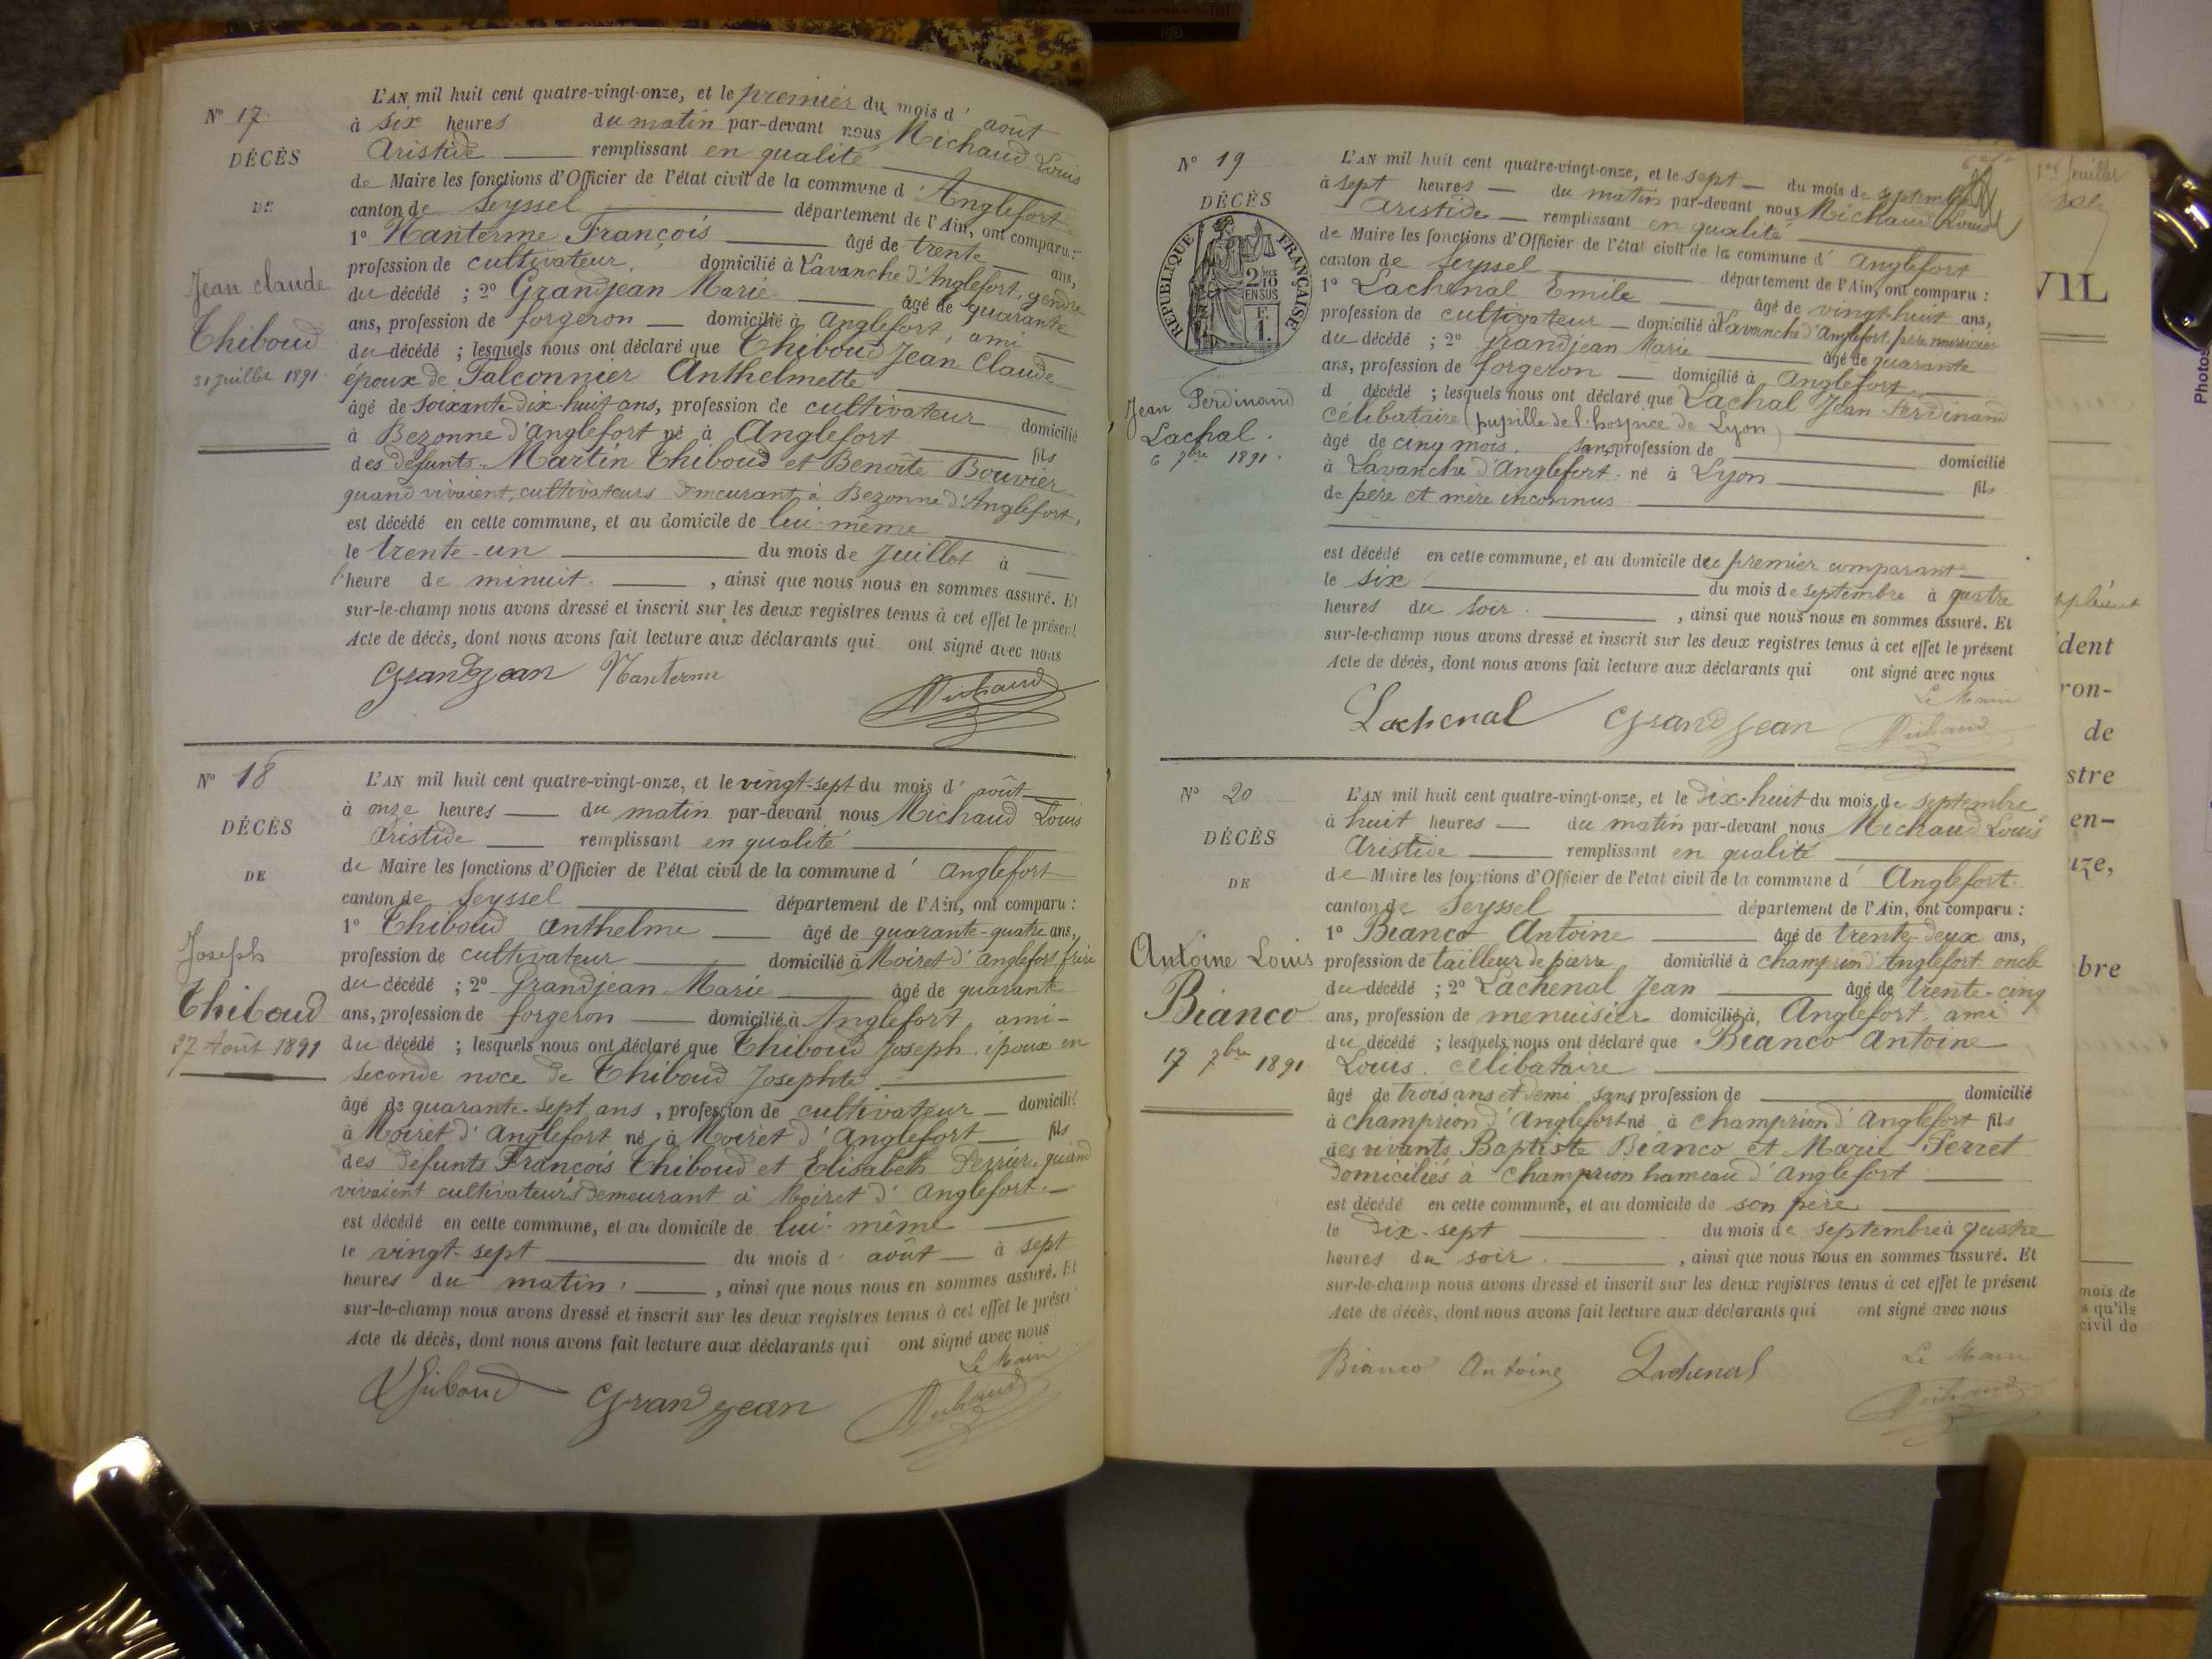 N° 17
DÉCÈS
DE
Jean Claude
Thiboud
31 juillet 1891.
L'AN mil huit cent quatre-vingt-onze, et le premier du mois d' août
à six heures du matin par-devant nous Michaud Louis
Aristide remplissant en qualité
de Maire les fonctions d'Officier de l'état civil de la commune d' Anglefort
canton de Seyssel département de l'Ain, ont comparu :
1° Nanterme François âgé de trente ans,
profession de cultivateur, domicilié à Lavanche d'Anglefort, gendre
du décédé ; 2° Grandjean Marie âgé de quarante
ans, profession de forgeron domicilié à Anglefort, ami
du décédé ; lesquels nous ont déclaré que Thiboud Jean Claude
époux de Falconnier Anthelmette
âgé de soixante-dix-huit ans, profession de cultivateur domicilié
à Bezonne d'Anglefort né à Anglefort fils
des défunts Martin Thiboud et Benoîte Bouvier
quand vivaient, cultivateurs demeurant à Bezonne d'Anglefort,
est décédé en cette commune, et au domicile de lui-même
le trente-un du mois de Juillet à
l'heure de minuit. , ainsi que nous nous en sommes assuré. Et
sur-le-champ nous avons dressé et inscrit sur les deux registres tenus à cet effet le présent
Acte de décès, dont nous avons fait lecture aux déclarants qui ont signé avec nous
Grandjean Nanterme Michaud
N° 18
DÉCÈS
DE
Joseph
Thiboud
27 Août 1891
L'AN mil huit cent quatre-vingt-onze, et le vingt-sept du mois d' août
à onze heures du matin par-devant nous Michaud Louis
Aristide remplissant en qualité
de Maire les fonctions d'Officier de l'état civil de la commune d' Anglefort
canton de Seyssel département de l'Ain, ont comparu :
1° Thiboud Anthelme âgé de quarante-quatre ans,
profession de cultivateur domicilié à Moiret d'Anglefort frère
du décédé ; 2° Grandjean Marie âgé de quarante
ans, profession de forgeron domicilié à Anglefort, ami
du décédé ; lesquels nous ont déclaré que Thiboud Joseph. époux en
seconde noce de Thiboud Josephte
âgé de quarante-sept ans, profession de cultivateur domicilié
à Moiret d'Anglefort né à Moiret d'Anglefort fils
des défunts François Thiboud et Elisabeth Perrier, quand
vivaient cultivateurs demeurant à Moiret d'Anglefort.
est décédé en cette commune, et au domicile de lui-même
le vingt-sept du mois d' août à sept
heures du matin. , ainsi que nous nous en sommes assuré. Et
sur-le-champ nous avons dressé et inscrit sur les deux registres tenus à cet effet le présent
Acte de décès, dont nous avons fait lecture aux déclarants qui ont signé avec nous
Le Maire
Thiboud Grandjean Michaud
N° 19
DÉCÈS
RÉPUBLIQUE FRANÇAISE
2/10 EN SUS
F. 1.
Jean Ferdinand
Lachal.
6 7bre 1891.
L'AN mil huit cent quatre-vingt-onze, et le sept du mois de septembre
à sept heures du matin par-devant nous Michaud Louis
Aristide remplissant en qualité
de Maire les fonctions d'Officier de l'état civil de la commune d' Anglefort
canton de Seyssel département de l'Ain, ont comparu :
1° Lachenal Emile âgé de vingt-huit ans,
profession de cultivateur domicilié à Lavanche d'Anglefort, père nourricier
du décédé ; 2° Grandjean Marie âgé de quarante
ans, profession de forgeron domicilié à Anglefort.
d décédé ; lesquels nous ont déclaré que Lachal Jean Ferdinand
célibataire (pupille de l'hospice de Lyon)
âgé de cinq mois. sans profession de domicilié
à Lavanche d'Anglefort. né à Lyon fils
de père et mère inconnus
est décédé en cette commune, et au domicile du premier comparant
le six du mois de septembre à quatre
heures du soir. , ainsi que nous nous en sommes assuré. Et
sur-le-champ nous avons dressé et inscrit sur les deux registres tenus à cet effet le présent
Acte de décès, dont nous avons fait lecture aux déclarants qui ont signé avec nous
Le Maire
Lachenal Grandjean Michaud
N° 20
DÉCÈS
DE
Antoine Louis
Bianco
17 7bre 1891
L'AN mil huit cent quatre-vingt-onze, et le dix-huit du mois de septembre
à huit heures du matin par-devant nous Michaud Louis
Aristide remplissant en qualité
de Maire les fonctions d'Officier de l'état civil de la commune d' Anglefort.
canton de Seyssel département de l'Ain, ont comparu :
1° Bianco Antoine âgé de trente-deux ans,
profession de tailleur de pierre domicilié à Champrion d'Anglefort oncle
du décédé ; 2° Lachenal Jean âgé de trente-cinq
ans, profession de menuisier domicilié à Anglefort. ami
du décédé ; lesquels nous ont déclaré que Bianco Antoine
Louis. célibataire
âgé de trois ans et demi sans profession de domicilié
à Champrion d'Anglefort né à Champrion d'Anglefort fils
des vivants Baptiste Bianco et Marie Perret
domiciliés à Champrion hameau d'Anglefort
est décédé en cette commune, et au domicile de son père
le dix-sept du mois de septembre à quatre
heures du soir. , ainsi que nous nous en sommes assuré. Et
sur-le-champ nous avons dressé et inscrit sur les deux registres tenus à cet effet le présent
Acte de décès, dont nous avons fait lecture aux déclarants qui ont signé avec nous
Le Maire
Bianco Antoine Lachenal Michaud
feuillet
VIL
dent
ron-
de
stre
en-
uze,
bre
mois de
s qu'ils
civil de
Photos